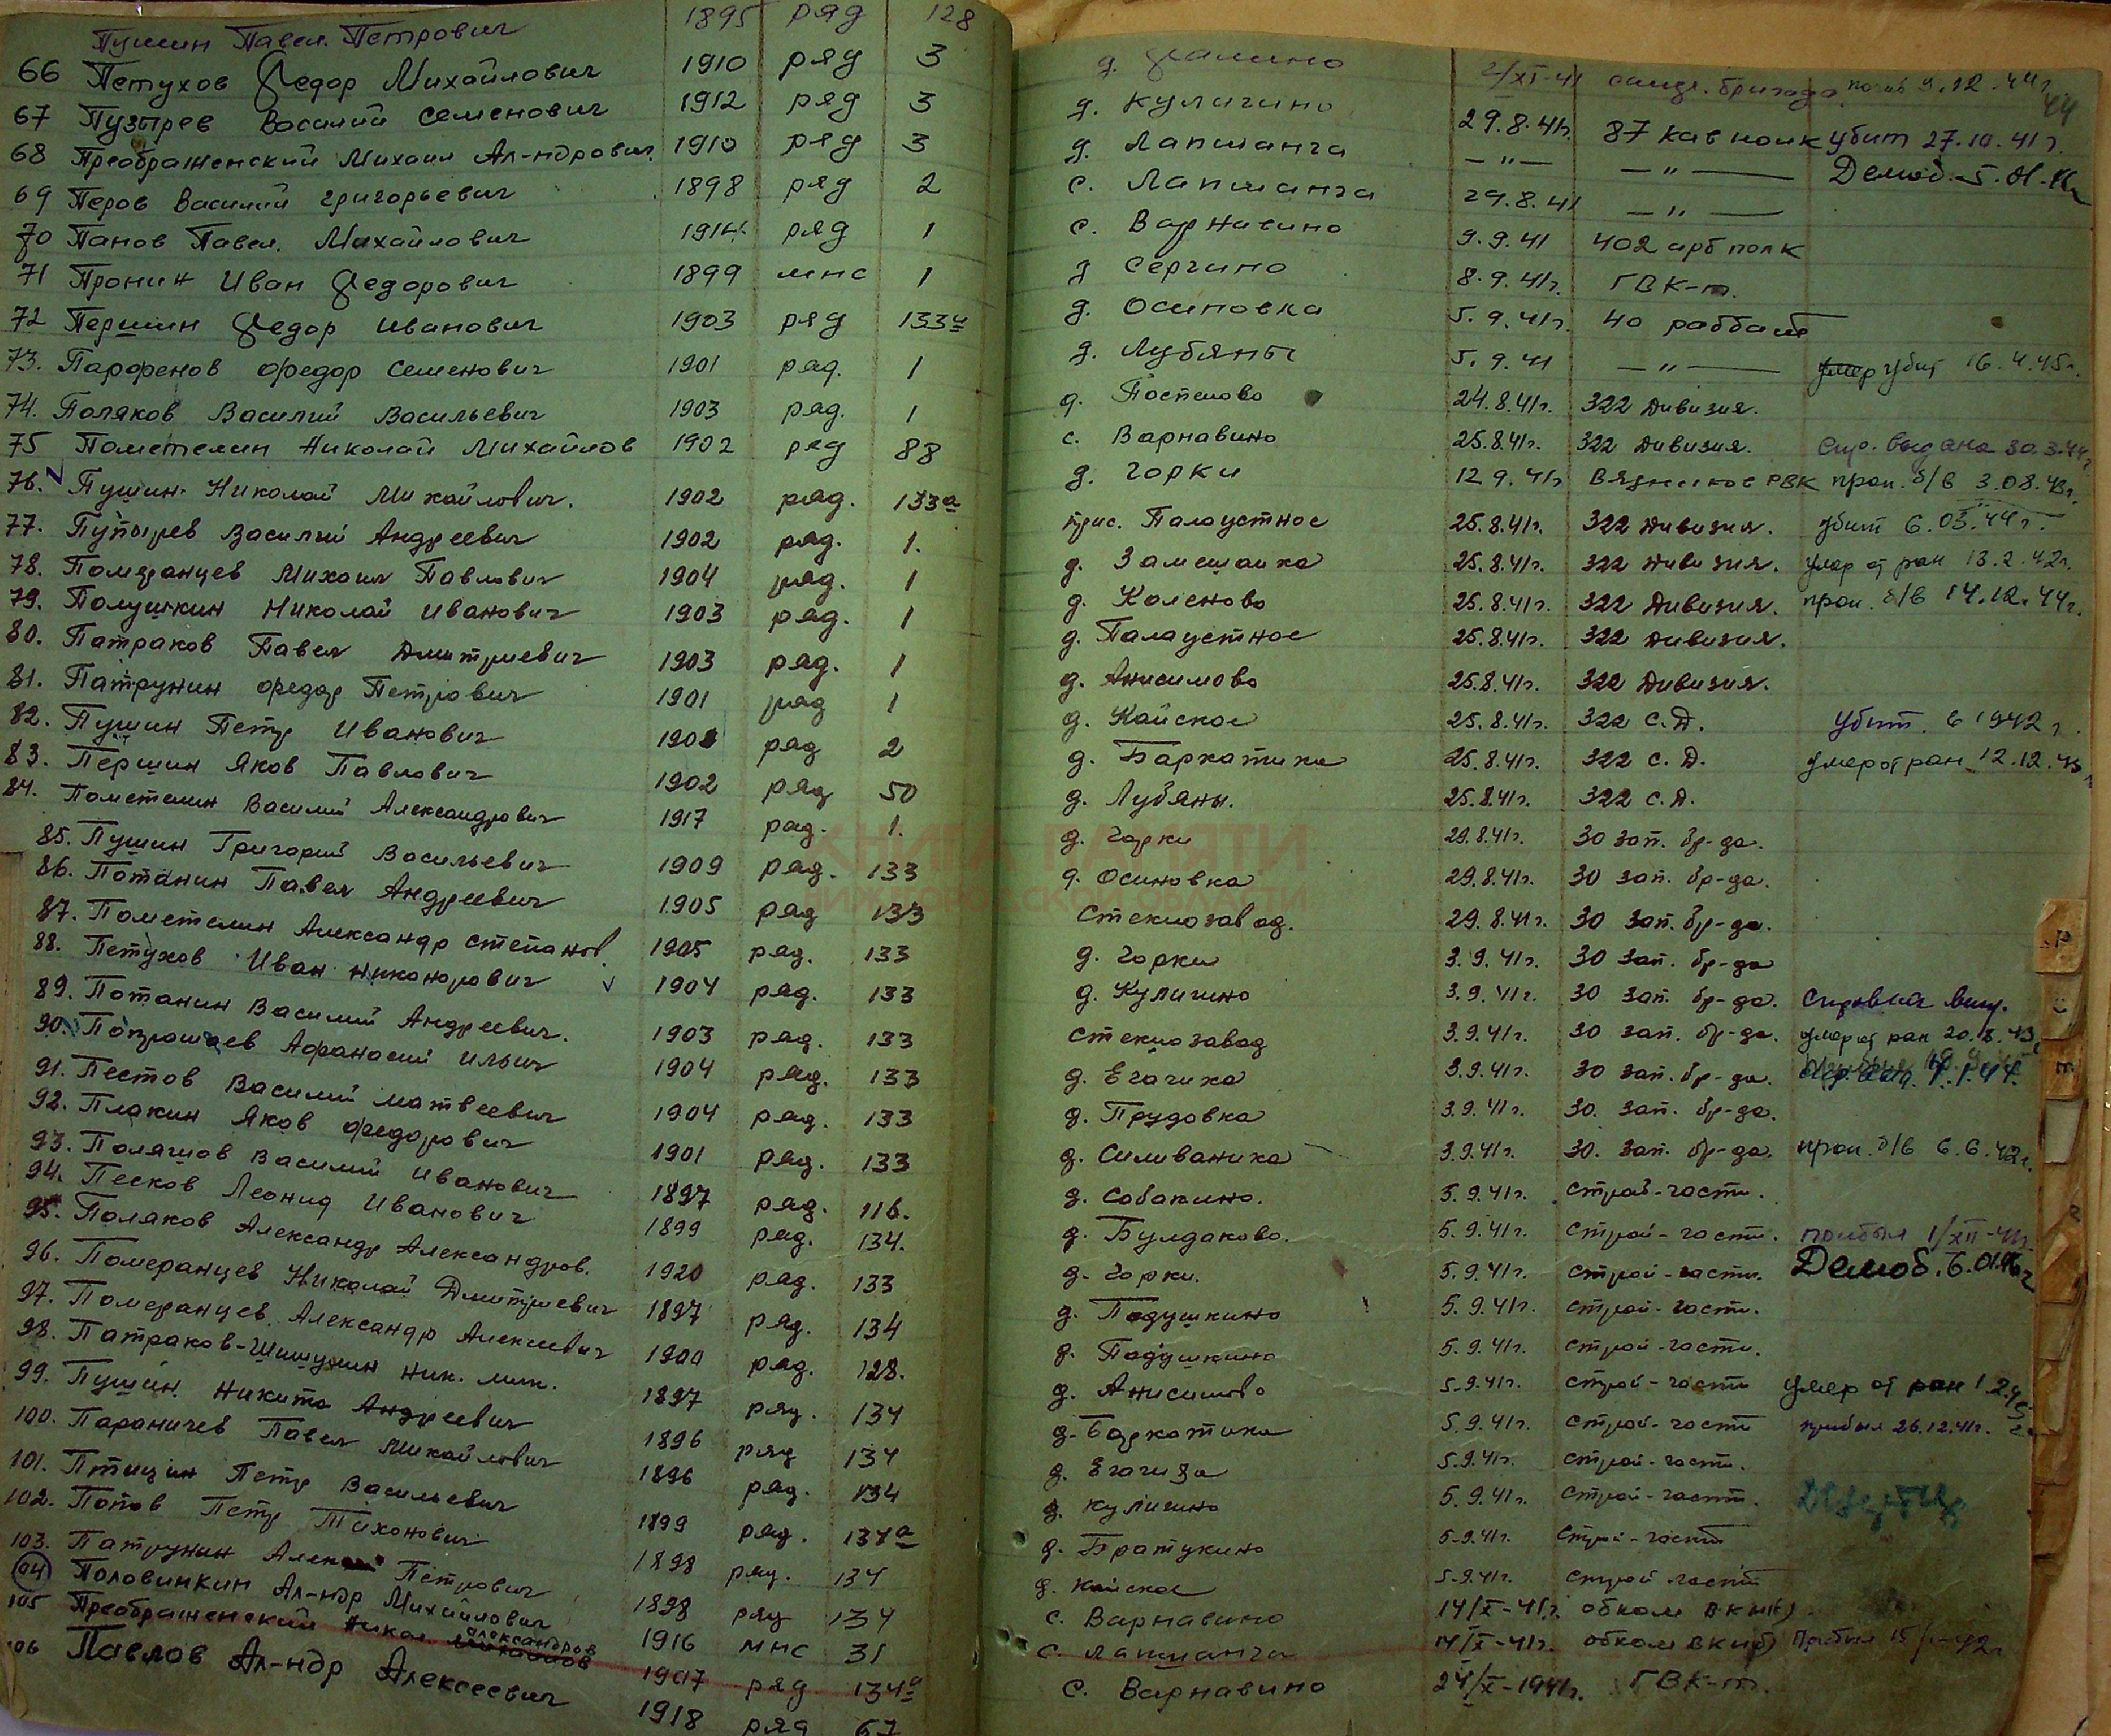 Пушин Павел Петрович 1895 ряд 128
66 Петухов Федор Михайлович 1910 ряд 3
67 Пузырев Василий Семенович 1912 ряд 3
68 Преображенский Михаил Ал-ндрович 1910 ряд 3
69 Перов Василий Григорьевич 1898 ряд 2
70 Панов Павел Михайлович 1914 ряд 1
71 Пронин Иван Федорович 1899 мнс 1
72 Першин Федор Иванович 1903 ряд 133
73. Парфенов Федор Семенович 1901 ряд. 1
74. Поляков Василий Васильевич 1903 ряд. 1
75 Пометелин Николай Михайлов 1902 ряд 88
76. Пушин Николай Михайлович. 1902 ряд. 133а
77. Пупырев Василий Андреевич 1902 ряд. 1.
78. Померанцев Михаил Павлович 1904 ряд. 1
79. Полушкин Николай Иванович 1903 ряд. 1
80. Патраков Павел Дмитриевич 1903 ряд. 1
81. Патрунин Федор Петрович 1901 ряд 1
82. Пушин Петр Иванович ряд 2
83. Першин Яков Павлович 1902 ряд 50
84. Пометелин Василий Александрович 1917 ряд. 1.
85. Пушин Григорий Васильевич 1909 ряд. 133
86. Потанин Павел Андреевич 1905 ряд 133
87. Пометелин Александр Степанов. 1905 ряд. 133
88. Петухов Иван Никонорович 1904 ряд. 133
89. Потанин Василий Андреевич. 1903 ряд. 133
90. Афанасий Ильич 1904 ряд. 133
91. Пестов Василий Матвеевич 1904 ряд. 133
92. Плакин Яков Федорович 1901 ряд. 133
93. Василий Иванович 1897 ряд. 116.
94. Песков Леонид Иванович 1899 ряд. 134.
95. Поляков Александр Александров. 1920 ряд. 133
96. Померанцев Николай Дмитриевич 1897 ряд. 134
97. Померанцев Александр Алексеевич 1900 ряд. 128.
98. Патраков-Шишунин Ник. Мих. 1897 ряд. 134
99. Пушин Никита Андреевич 1896 ряд 134
100. Параничев Павел Михайлович 1896 ряд. 134
101. Птицин Петр Васильевич 1899 ряд. 134а
102. Попов Петр Тихонович 1898 ряд. 134
103. Патрунин Петрович 1898 ряд 134
104 Половинкин Ал-ндр Михайлович 1916 мнс 31
105 Преображенский Никол. Александров 1907 ряд 134а
106 Павлов Ал-ндр Алексеевич 1918 ряд 67
д. 2/XI-41 бригада погиб 9.12.44г.
44
д. Кулигино 29.8.41г. 87 кав полк убит 27.10.41г.
д. Лапшанга —"— —"— Демоб. 5.01.46г
с. Лапшанга 29.8.41 —"—
с. Варнавино 9.9.41 402 арт полк
д Сергино 8.9.41г. ГВК-т.
д. Осиновка 5.9.41г. 40 раббат
д. Лубяны 5.9.41 —"— умер убит 16.4.45г.
д. Поспелово 24.8.41г. 322 Дивизия.
с. Варнавино 25.8.41г. 322 Дивизия. Спр. выдана 30.3.44г
д. Горки 12 9.41г РВК проп. б/в 3.08.43г.
прис. Палаустное 25.8.41г. 322 Дивизия. убит 6.03.44г.
д. Замешаиха 25.8.41г. 322 Дивизия. умер от ран 13.2.42г.
д. Каленово 25.8.41г. 322 Дивизия. проп. б/в 14.12.44г.
д. Палаустное 25.8.41г. 322 Дивизия.
д. Анисимово 25.8.41г. 322 Дивизия.
д. Кайское 25.8.41г. 322 С.Д. убит в 1942 г.
д. Баркатиха 25.8.41г. 322 С.Д. умер от ран 12.12.43
д. Лубяны. 25.8.41г. 322 С.Д.
д. Горки 29.8.41г. 30 зап. бр-да.
д. Осиновка 29.8.41г. 30 зап. бр-да.
Стеклозавод. 29.8.41г. 30 зап. бр-да.
д. Горки 3.9.41г. 30 зап. бр-да
д. Кулигино 3.9.41г. 30 зап. бр-да. Справка выд.
Стеклозавод 3.9.41г. 30 зап. бр-да. умер от ран 20.8.43
д. Егачиха 3.9.41г. 30 зап. бр-да.
д. Прудовка 3.9.41г. 30. зап. бр-да.
д. Силиваниха 3.9.41г. 30. зап. бр-да. проп. б/в 6.6.42г.
д. Собакино. 5.9.41г. Строй-части.
д. Булдаково. 5.9.41г. Строй-части. прибыл 1/XII-41г.
д. Горки. 5.9.41г. Строй-части. Демоб. 6.01.46г
д. Подушкино 5.9.41г. Строй-части.
д. Подушкино 5.9.41г. Строй-части.
д. Анисимово 5.9.41г. Строй-части умер от ран 1.2.45г
д. Баркатиха 5.9.41г. Строй-части прибыл 26.12.41г.
д. 5.9.41г. Строй-части.
д. Кулигино 5.9.41г. Строй-части.
д. Братукино 5-9.41г. Строй-части
д. Кайское 5-9.41г. Строй-части
с. Варнавино 14/X-41г. обком ВКП(б)
с. Лапшанга 14/X-41г. обком ВКП(б) Прибыл
с. Варнавино 24/X-1941г. ГВК-т.
КНИГА ПАМЯТИ
НИЖЕГОРОДСКОЙ ОБЛАСТИ